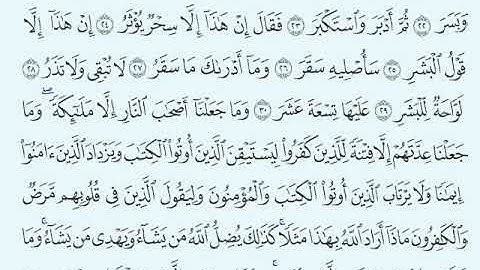 وَبَسَرَ ٢٢ ثُمَّ أَدْبَرَ وَٱسْتَكْبَرَ ٢٣ فَقَالَ إِنْ هَٰذَآ إِلَّا سِحْرٌ يُؤْثَرُ ٢٤ إِنْ هَٰذَآ إِلَّا
قَوْلُ ٱلْبَشَرِ ٢٥ سَأُصْلِيهِ سَقَرَ ٢٦ وَمَآ أَدْرَىٰكَ مَا سَقَرُ ٢٧ لَا تُبْقِى وَلَا تَذَرُ ٢٨
لَوَّاحَةٌ لِّلْبَشَرِ ٢٩ عَلَيْهَا تِسْعَةَ عَشَرَ ٣٠ وَمَا جَعَلْنَآ أَصْحَٰبَ ٱلنَّارِ إِلَّا مَلَٰٓئِكَةً ۙ وَمَا
جَعَلْنَا عِدَّتَهُمْ إِلَّا فِتْنَةً لِّلَّذِينَ كَفَرُوا۟ لِيَسْتَيْقِنَ ٱلَّذِينَ أُوتُوا۟ ٱلْكِتَٰبَ وَيَزْدَادَ ٱلَّذِينَ ءَامَنُوٓا۟
إِيمَٰنًا وَلَا يَرْتَابَ ٱلَّذِينَ أُوتُوا۟ ٱلْكِتَٰبَ وَٱلْمُؤْمِنُونَ وَلِيَقُولَ ٱلَّذِينَ فِى قُلُوبِهِم مَّرَضٌ
وَٱلْكَٰفِرُونَ مَاذَآ أَرَادَ ٱللَّهُ بِهَٰذَا مَثَلًا ۚ كَذَٰلِكَ يُضِلُّ ٱللَّهُ مَن يَشَآءُ وَيَهْدِى مَن يَشَآءُ ۚ وَمَا